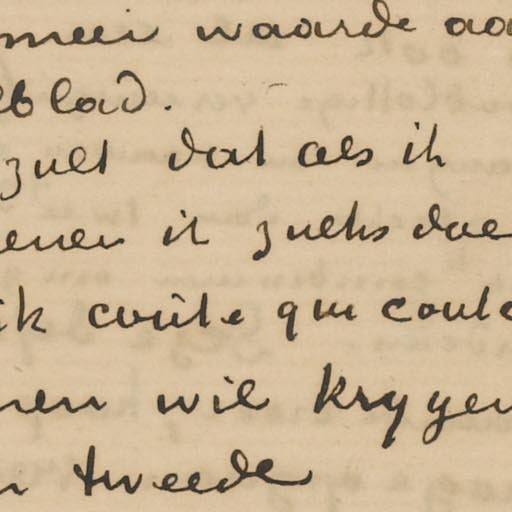 meer waarde aa
blad.
zult dat als ik
enen ik zulks doe
ik coûte que coute
nen wil krygen
n tweede